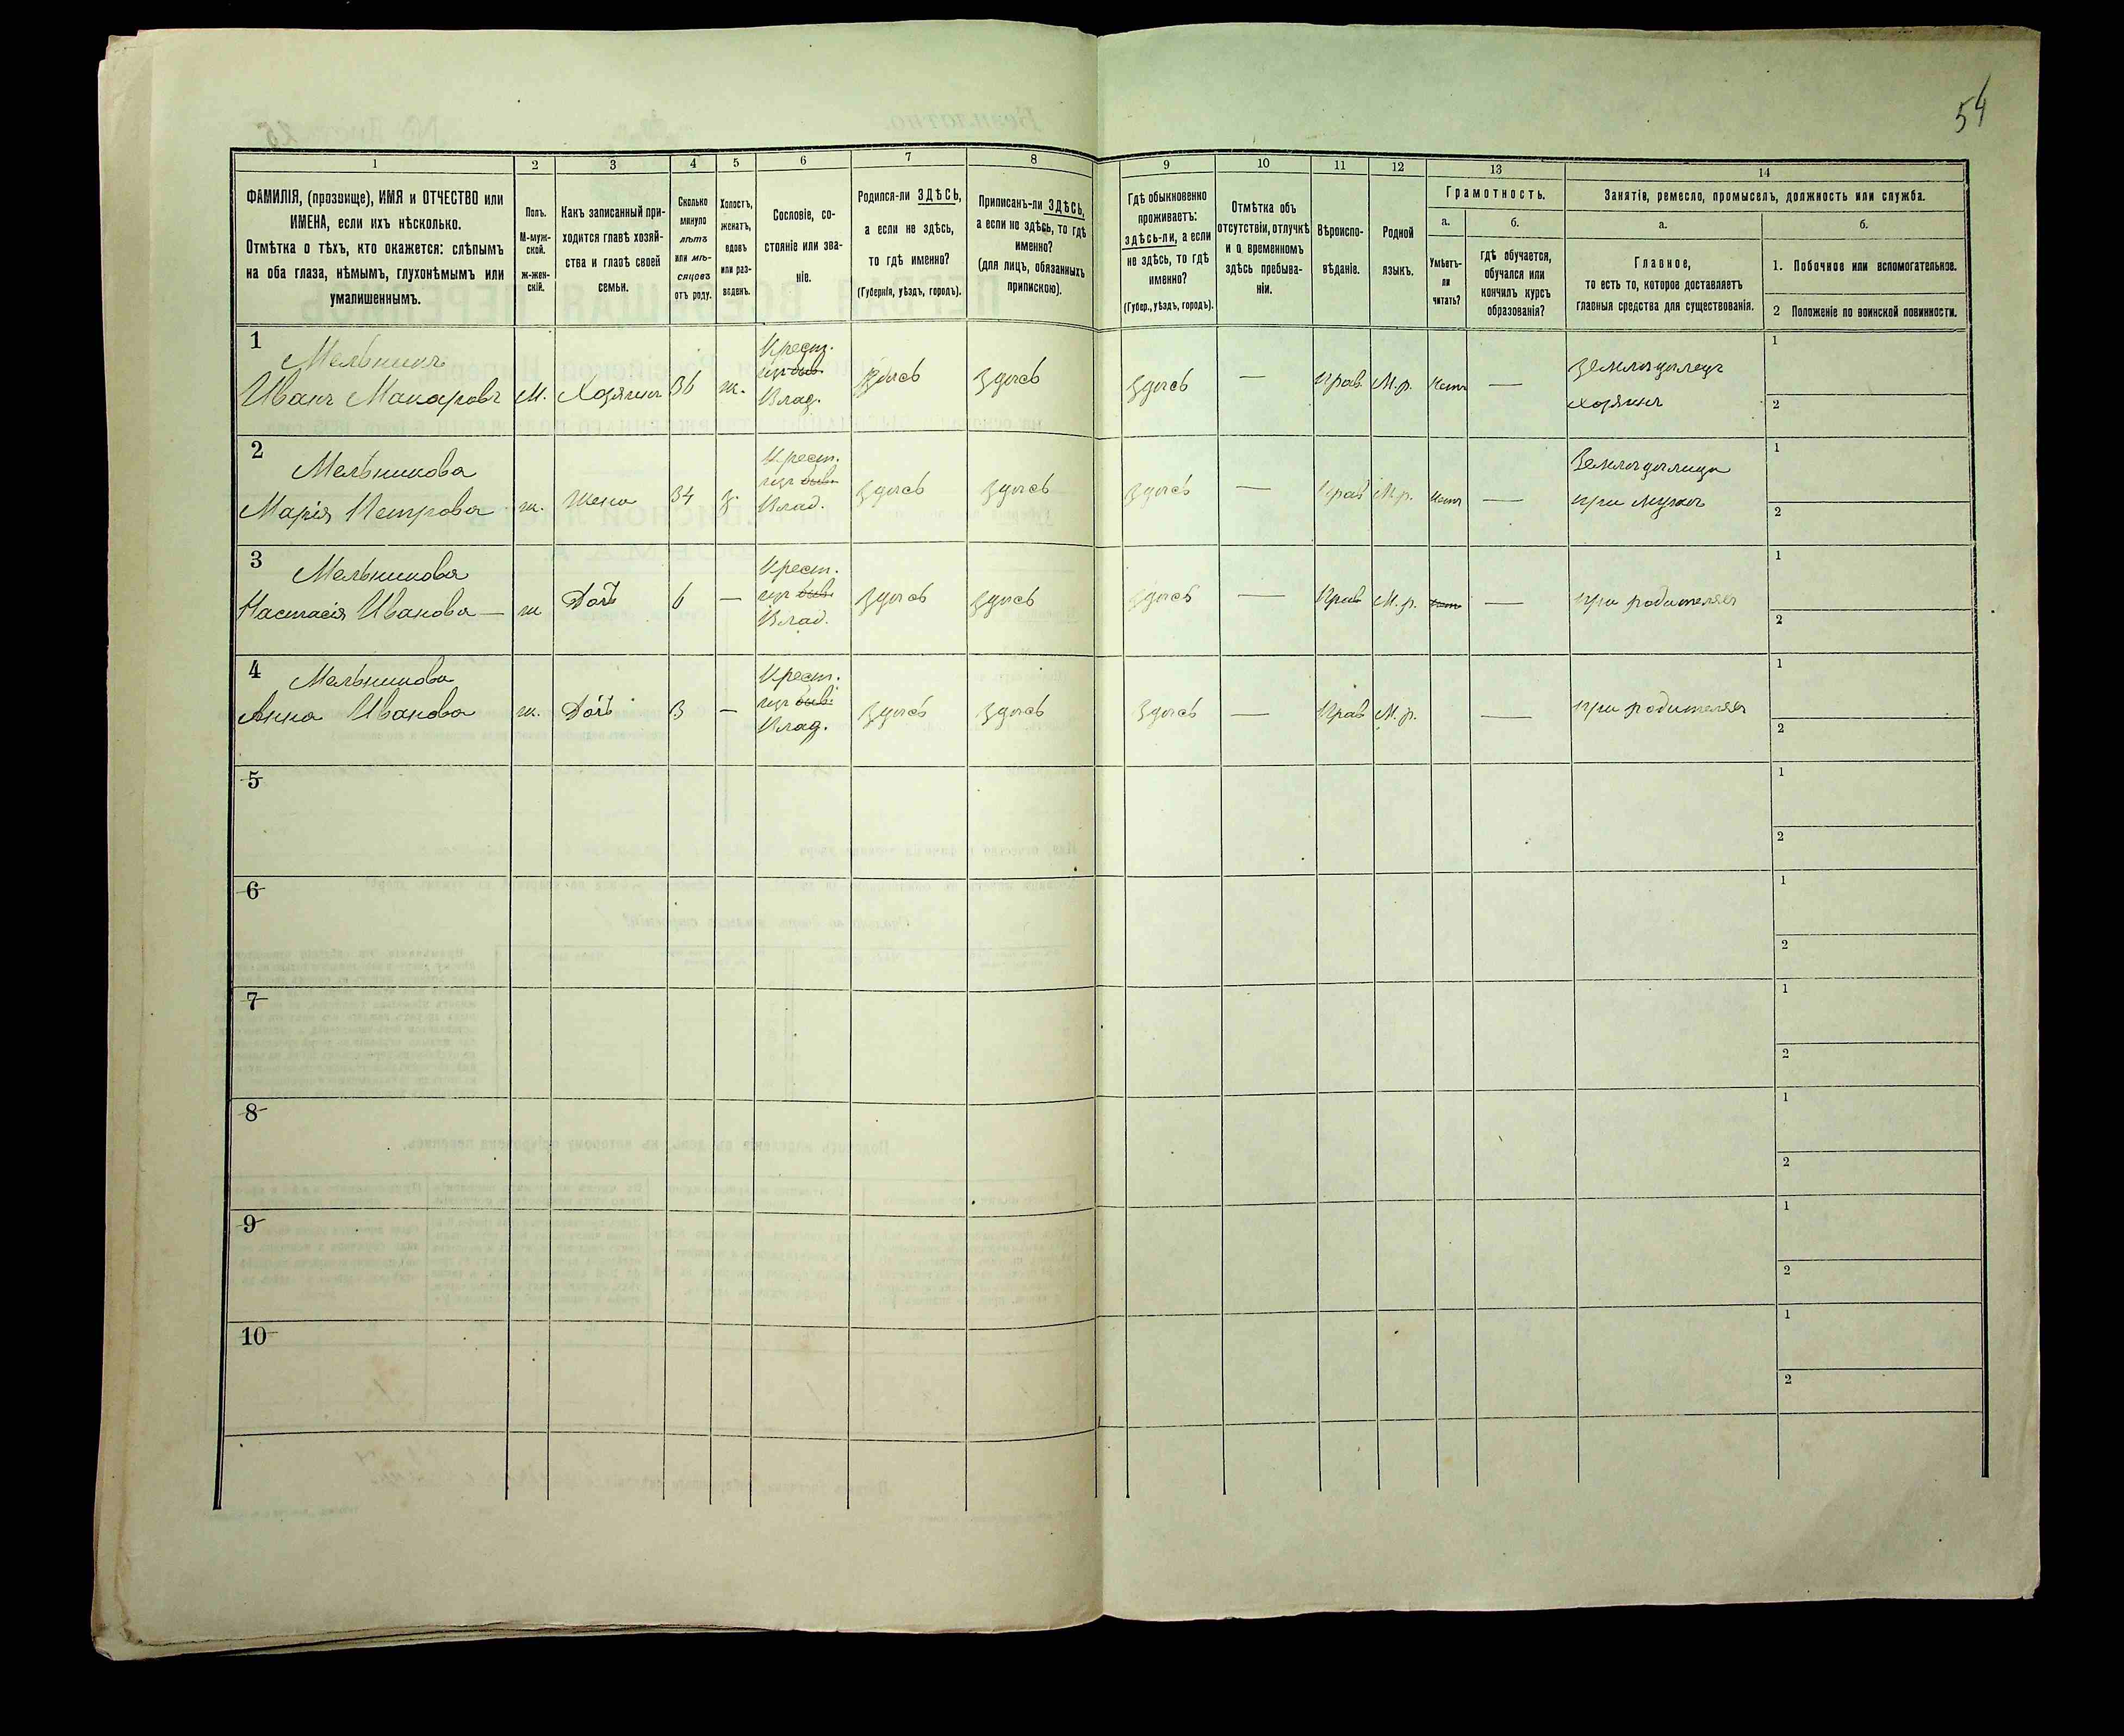 54
1
2
3
4
5
6
7
8
9
10
11
12
13
14
ФАМИЛІЯ, (прозвище), ИМЯ и ОТЧЕСТВО или
ИМЕНА, если ихъ нѣсколько.
Отмѣтка о тѣхъ, кто окажется: слѣпымъ
на оба глаза, нѣмымъ, глухонѣмымъ или
умалишеннымъ.
Полъ.
М-муж-
ской.
ж-жен-
скій.
Какъ записанный при-
ходится главѣ хозяй-
ства и главѣ своей
семьи.
Сколько
минуло
лѣтъ
или мѣ-
сяцовъ
отъ роду.
Холостъ,
женатъ,
вдовъ
или раз-
веденъ.
Сословіе, со-
стояніе или зва-
ніе.
Родился-ли ЗДѢСЬ,
а если не здѣсь,
то гдѣ именно?
(Губернія, уѣздъ, городъ).
Приписанъ-ли ЗДѢСЬ,
а если не здѣсь, то гдѣ
именно?
(для лицъ, обязанныхъ
припискою).
Гдѣ обыкновенно
проживаетъ:
здѣсь-ли, а если
не здѣсь, то гдѣ
именно?
(Губер., уѣздъ, городъ).
Отмѣтка объ
отсутствіи, отлучкѣ
и о временномъ
здѣсь пребыва-
ніи.
Вѣроиспо-
вѣданіе.
Родной
языкъ.
Грамотность.
а.
б.
Умѣетъ-
ли
читать?
гдѣ обучается,
обучался или
кончилъ курсъ
образованія?
Занятіе, ремесло, промыселъ, должность или служба.
а.
б.
Главное,
то есть то, которое доставляетъ
главныя средства для существованія.
1. Побочное или вспомогательное.
2 Положеніе по воинской повинности.
1
Мельникъ
Иванъ Макаровъ
М.
Хозяинъ
36
ж.
Крест.
изъ быв.
Влад.
Здѣсь
Здѣсь
Здѣсь
—
Прав.
М.р.
Нетъ
—
Земледѣлецъ
хозяинъ
1
2
2
Мельникова
Марія Петрова
ж.
Жена
34
з.
Крест.
изъ быв.
Влад.
Здѣсь
Здѣсь
Здѣсь
—
Прав
М.р.
Нетъ
—
Земледѣлица
при мужѣ
1
2
3
Мельникова
Настасія Иванова —
ж
Дочь
6
—
Крест.
изъ быв.
Влад.
Здѣсь
Здѣсь
Здѣсь
—
Прав
М.р.
—
при родителяхъ
1
2
4
Мельникова
Анна Иванова
ж.
Дочь
3
—
Крест.
изъ быв.
Влад.
Здѣсь
Здѣсь
Здѣсь
—
Прав
М.р.
—
при родителяхъ
1
2
5
1
2
6
1
2
7
1
2
8
1
2
9
1
2
10
1
2